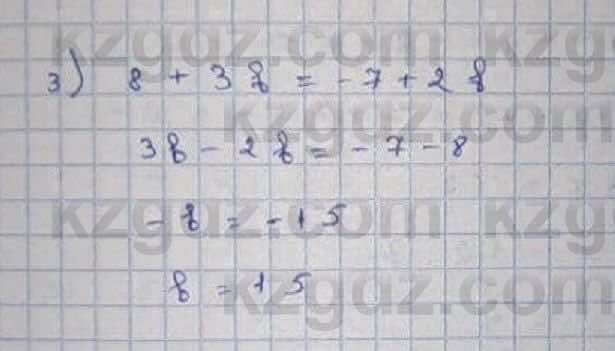 3) 8 + 3b = -7 + 2b
3b - 2b = -7 - 8
-b = -15
b = 15
kzgdz.com kzg
kzgdz.com
kzgdz.com kzg
kzgdz.com